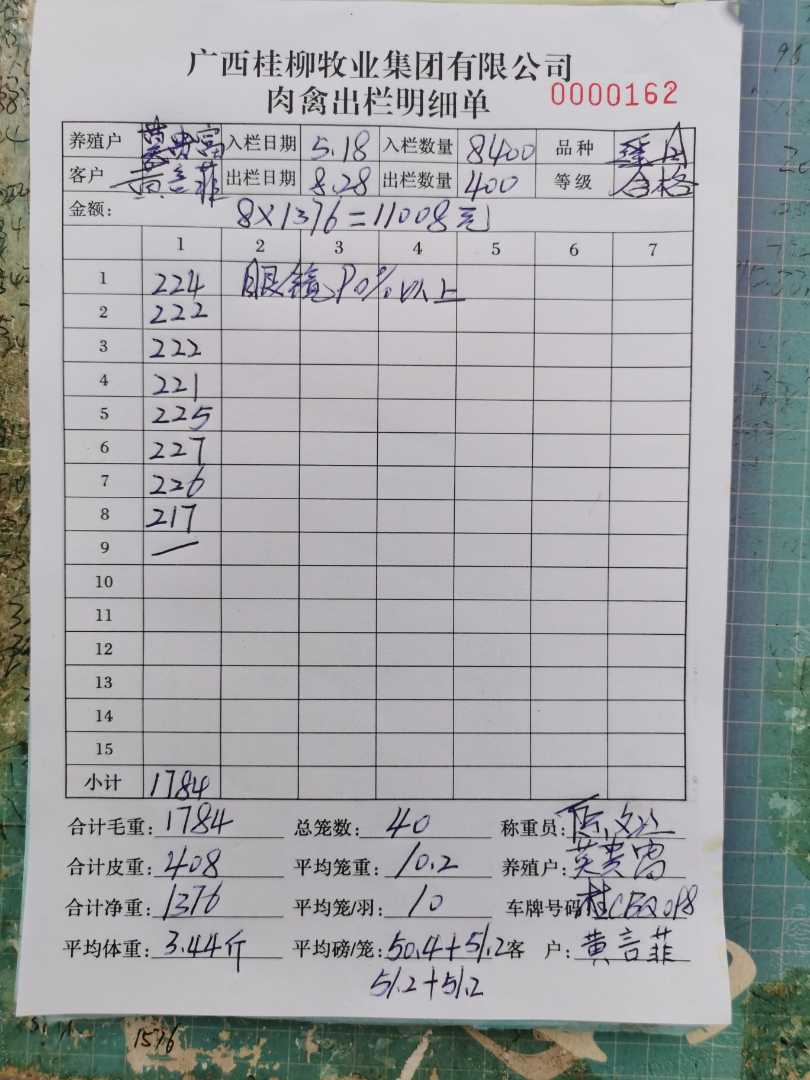 广西桂柳牧业集团有限公司
肉禽出栏明细单 0000162
养殖户 贵富 入栏日期 5.18 入栏数量 8400 品种
客户 黄言菲 出栏日期 8.28 出栏数量 400 等级 合格
金额: 8×1376=11008元
1 2 3 4 5 6 7
1 224 眼镜90%以上
2 222
3 222
4 221
5 225
6 227
7 226
8 217
9 —
10
11
12
13
14
15
小计 1784
合计毛重: 1784 总笼数: 40 称重员:
合计皮重: 408 平均笼重: 10.2 养殖户: 贵富
合计净重: 1376 平均笼/羽: 10 车牌号码
平均体重: 3.44斤 平均磅/笼: 50.4+51.2 客 户: 黄言菲
51.2+51.2
1576